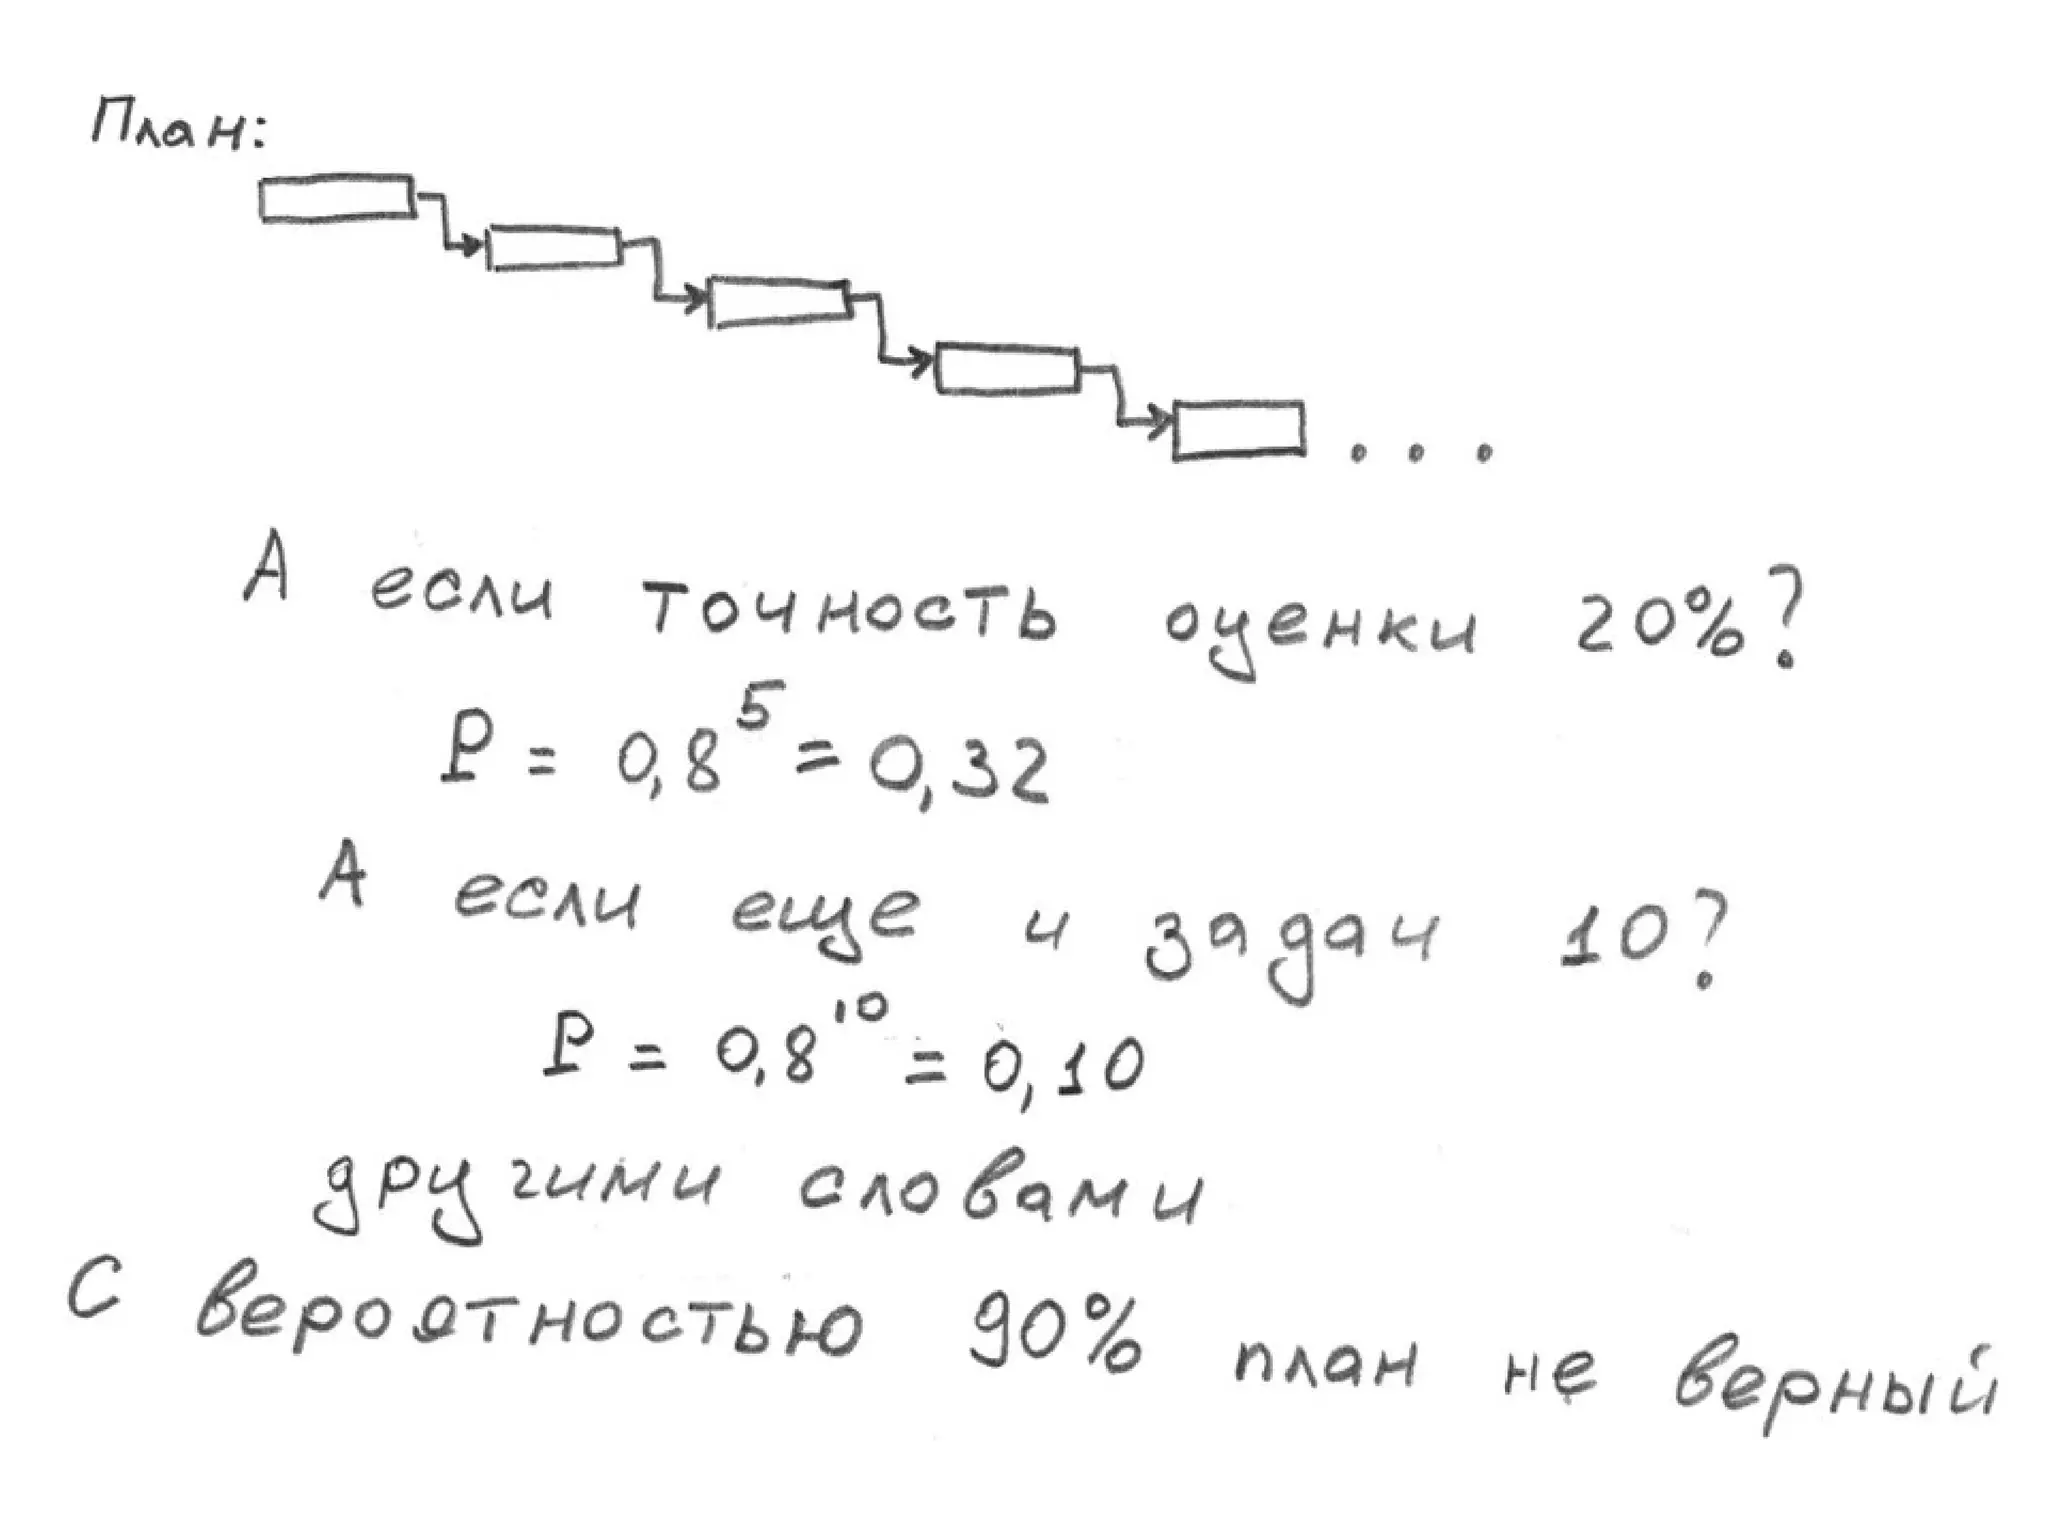 План:
...
А если точность оценки 20%?
P = 0,8⁵ = 0,32
А если еще и задач 10?
P = 0,8¹⁰ = 0,10
другими словами
С вероятностью 90% план не верный